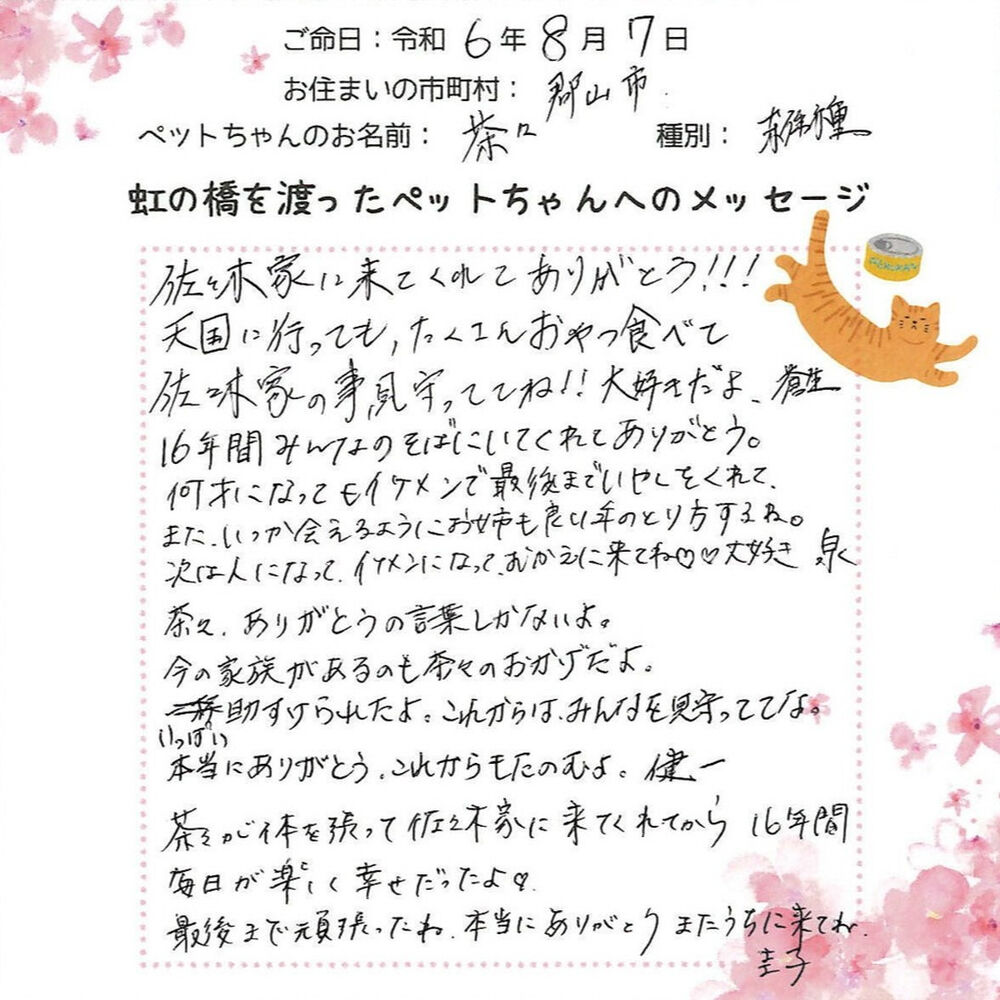 ご命日：令和 6年 8月 7日
お住まいの市町村： 郡山市
ペットちゃんのお名前： 茶々 種別： 雑種
虹の橋を渡ったペットちゃんへのメッセージ
佐々木家に来てくれてありがとう!!!
天国に行っても、たくさんおやつ食べて
佐々木家の事見守っててね!! 大好きだよ、蒼生
16年間みんなのそばにいてくれてありがとう。
何才になってもイケメンで最後までいやしをくれて、
また、いつか会えるようにお姉も良い年のとり方するね。
次は人になって、イケメンになって、むかえに来てね♡♡大好き 泉
茶々、ありがとうの言葉しかないよ。
今の家族があるのも茶々のおかげだよ。
いっぱい
助すけられたよ。これからは、みんなを見守っててな。
本当にありがとう、これからもたのむよ。健一
茶々が体を張って佐々木家に来てくれてから 16年間
毎日が楽しく幸せだったよ♡
最後まで頑張ったね、本当にありがとう またうちに来てね
圭子